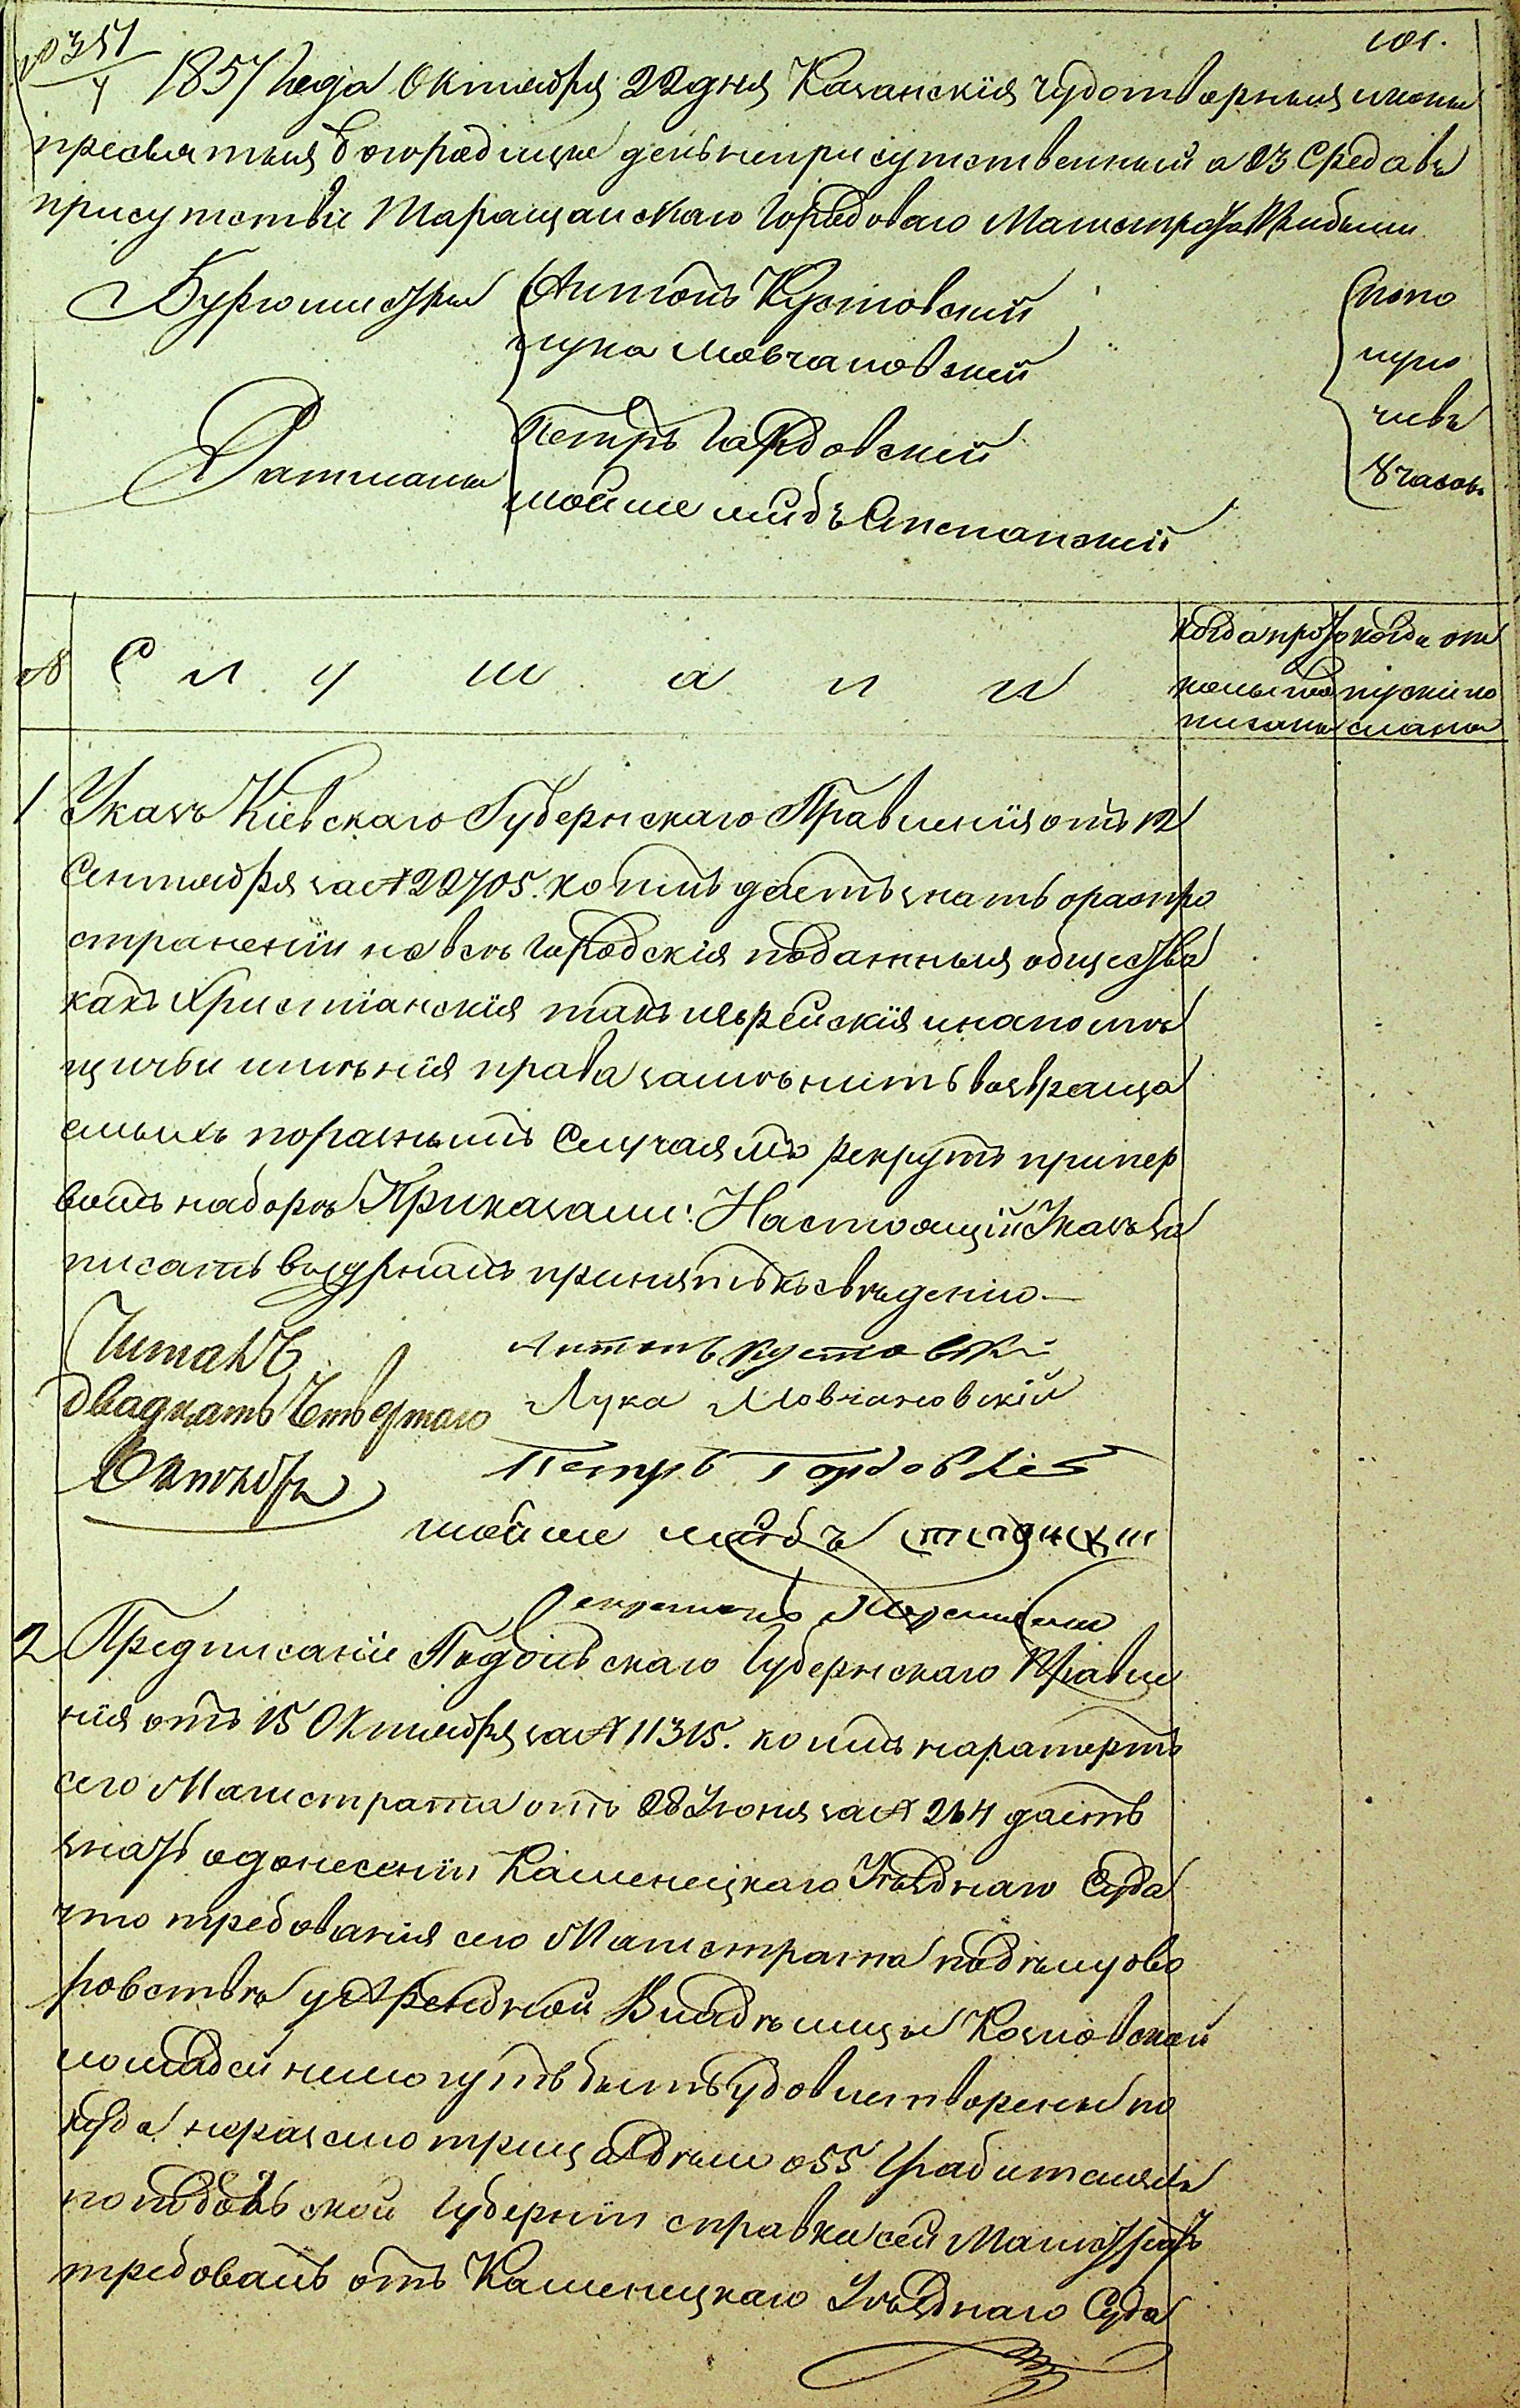 № 351/4
101.
1857 года Октября 22 дня Казанскія чудотворныя иконы
пресвятыя богородицы день неприсутственный а 23 Среда въ
присутствіе Таращанскаго Городоваго Магистрата Прибыли
Бургомистры Антонъ Кустовскій
Лука Мовчановскій
Ратманы Петръ Гордовскій
Мойше лейбъ
пополу
ночи въ
8 часовъ
№ Слушали
когда прото
колъ под
писанъ
когда от
пуски по
сланы
1 Указъ Кіевскаго Губернскаго Правленія отъ 12
Сентября за № 22705. коимъ даетъ знать о распро
страненіи на всѣ городскія податныя общества
какъ Христіанскія такъ и еврейскія и на помѣ
щичьи имѣнія права замѣнить возвраща
емыхъ поразнымъ Случаямъ рекрутъ при пер
вомъ наборѣ Приказали: Настоящій Указъ за
писать въ журналъ принять къ свѣденію —
Читанъ
двадцать Четвертаго
Октября
Антонъ Кустовскій
Лука Мовчановскій
Петръ Гордовскій
мойше лейбъ
Секретарь
2 Предписаніе Подольскаго Губернскаго Правле
нія отъ 15 Октября за № 11315. коимъ нарапортъ
сего Магистрата отъ 28 Іюня за № 264 даетъ
знать о донесеніи Каменецкаго Уѣзднаго Суда
что требованія сего Магистрата подѣлу о во
ровствѣ у Арендной Владѣлицы Козловской
лошадей немогутъ быть удовлетворены по
куда неразсмотрица дѣло о 55 грабителяхъ
по подольской Губерніи справка сей Магистратъ
требовалъ отъ Каменецкаго Уѣзднаго Суда